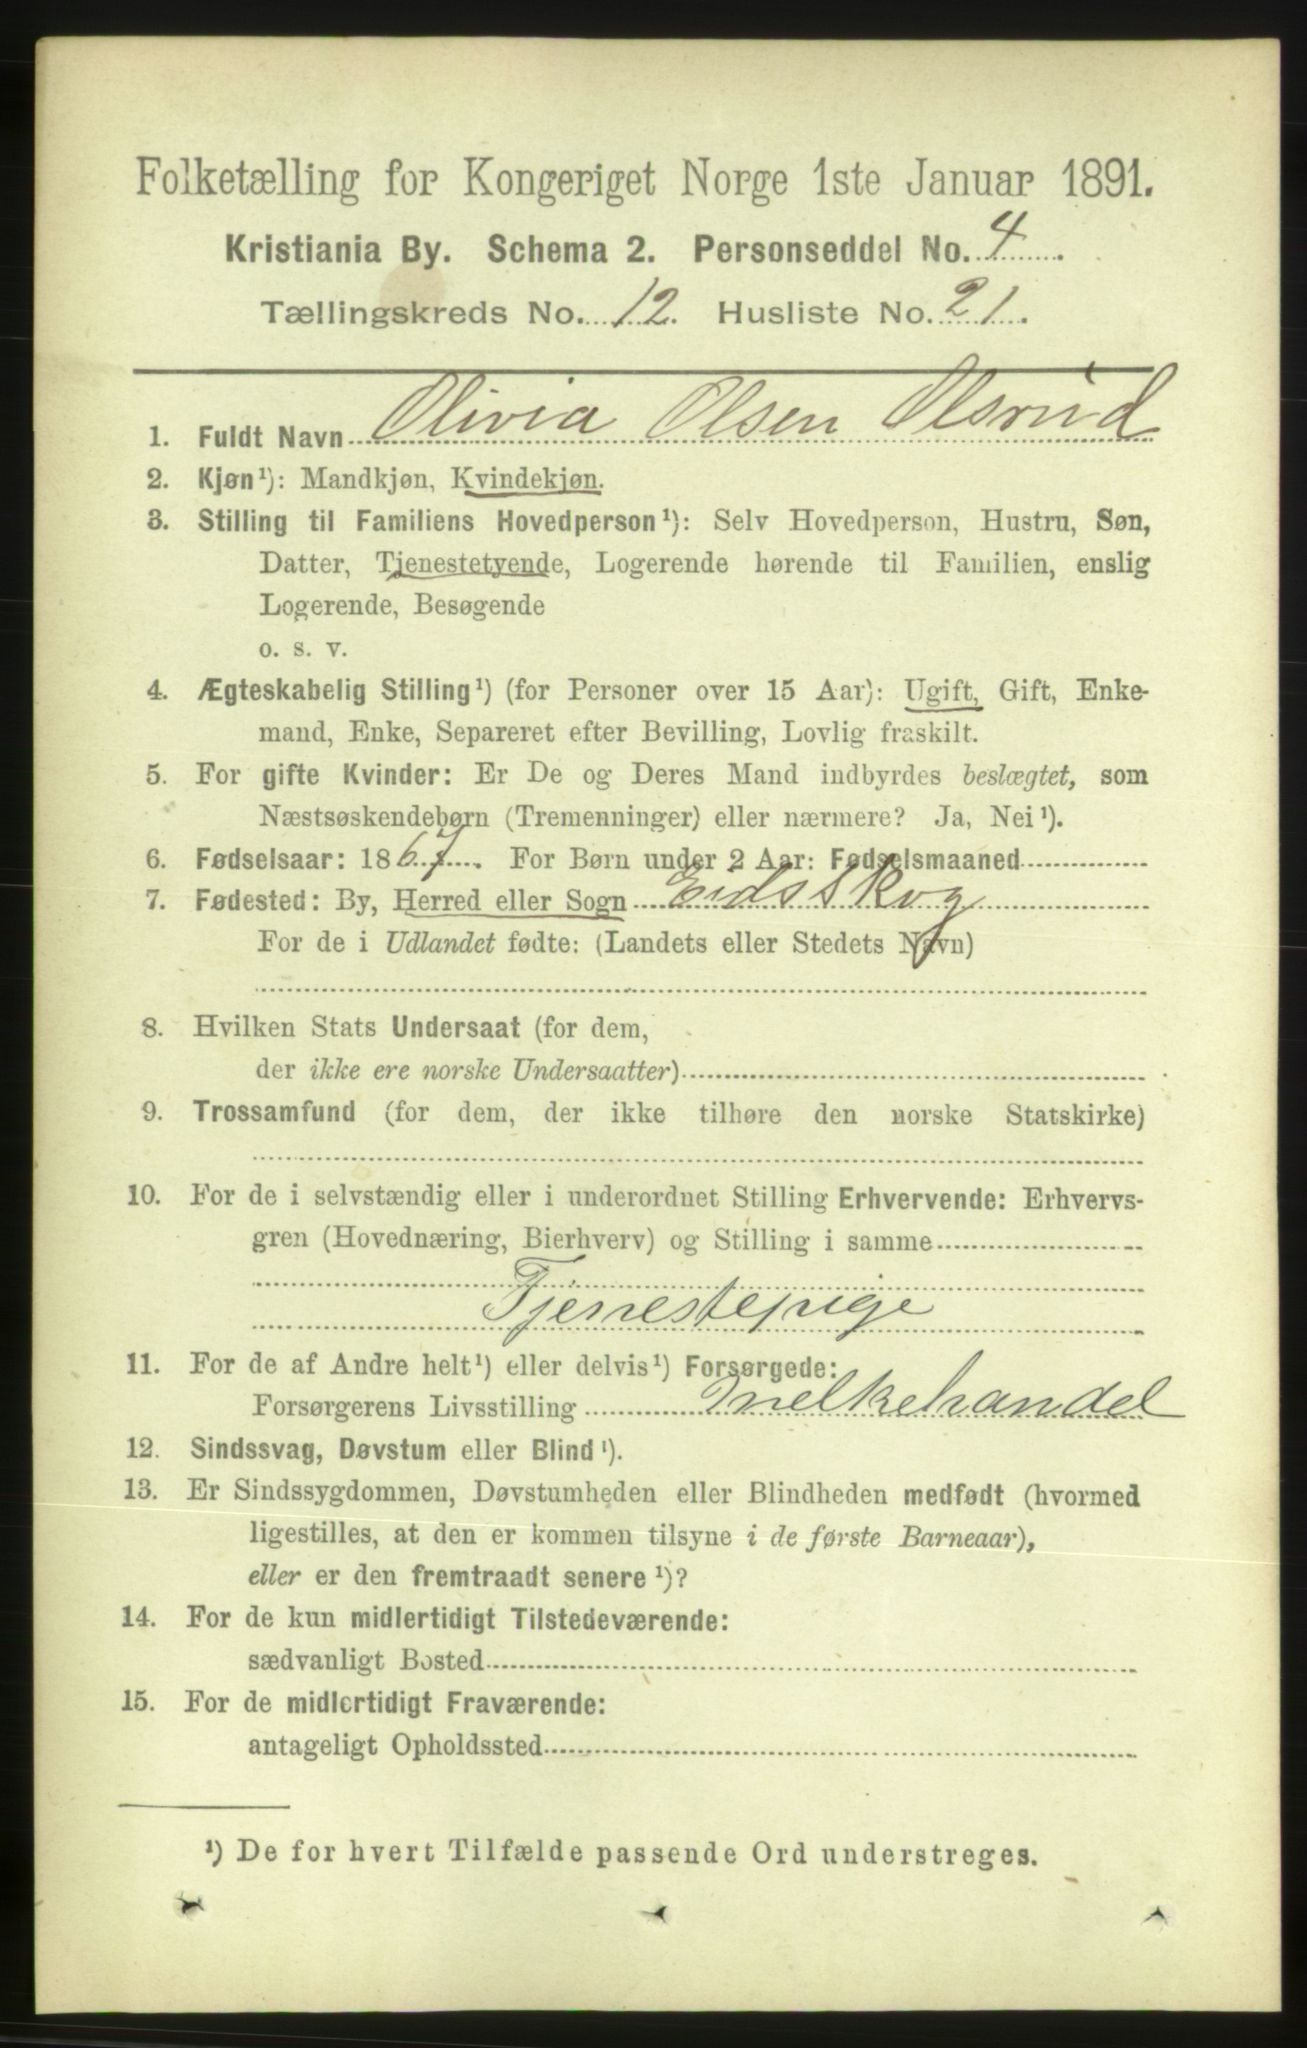 Folketælling for Kongeriget Norge 1ste Januar 1891.
Kristiania By. Schema 2. Personseddel No. 4
Tællingskreds No. 12. Husliste No. 21.
1. Fuldt Navn Olivia Olsen Olsrud
2. Kjøn¹): Mandkjøn, Kvindekjøn.
3. Stilling til Familiens Hovedperson¹): Selv Hovedperson, Hustru, Søn,
Datter, Tjenestetyende, Logerende hørende til Familien, enslig
Logerende, Besøgende
o. s. v.
4. Ægteskabelig Stilling¹) (for Personer over 15 Aar): Ugift, Gift, Enke-
mand, Enke, Separeret efter Bevilling, Lovlig fraskilt.
5. For gifte Kvinder: Er De og Deres Mand indbyrdes beslægtet, som
Næstsøskendebørn (Tremenninger) eller nærmere? Ja, Nei¹).
6. Fødselsaar: 1867. For Børn under 2 Aar: Fødselsmaaned
7. Fødested: By, Herred eller Sogn Eidsskog
For de i Udlandet fødte: (Landets eller Stedets Navn)
8. Hvilken Stats Undersaat (for dem,
der ikke ere norske Undersaatter)
9. Trossamfund (for dem, der ikke tilhøre den norske Statskirke)
10. For de i selvstændig eller i underordnet Stilling Erhvervende: Erhvervs-
gren (Hovednæring, Bierhverv) og Stilling i samme
Tjenestepige
11. For de af Andre helt¹) eller delvis¹) Forsørgede:
Forsørgerens Livsstilling Melkehandel
12. Sindssvag, Døvstum eller Blind¹).
13. Er Sindssygdommen, Døvstumheden eller Blindheden medfødt (hvormed
ligestilles, at den er kommen tilsyne i de første Barneaar),
eller er den fremtraadt senere¹)?
14. For de kun midlertidigt Tilstedeværende:
sædvanligt Bosted
15. For de midlertidigt Fraværende:
antageligt Opholdssted
¹) De for hvert Tilfælde passende Ord understreges.